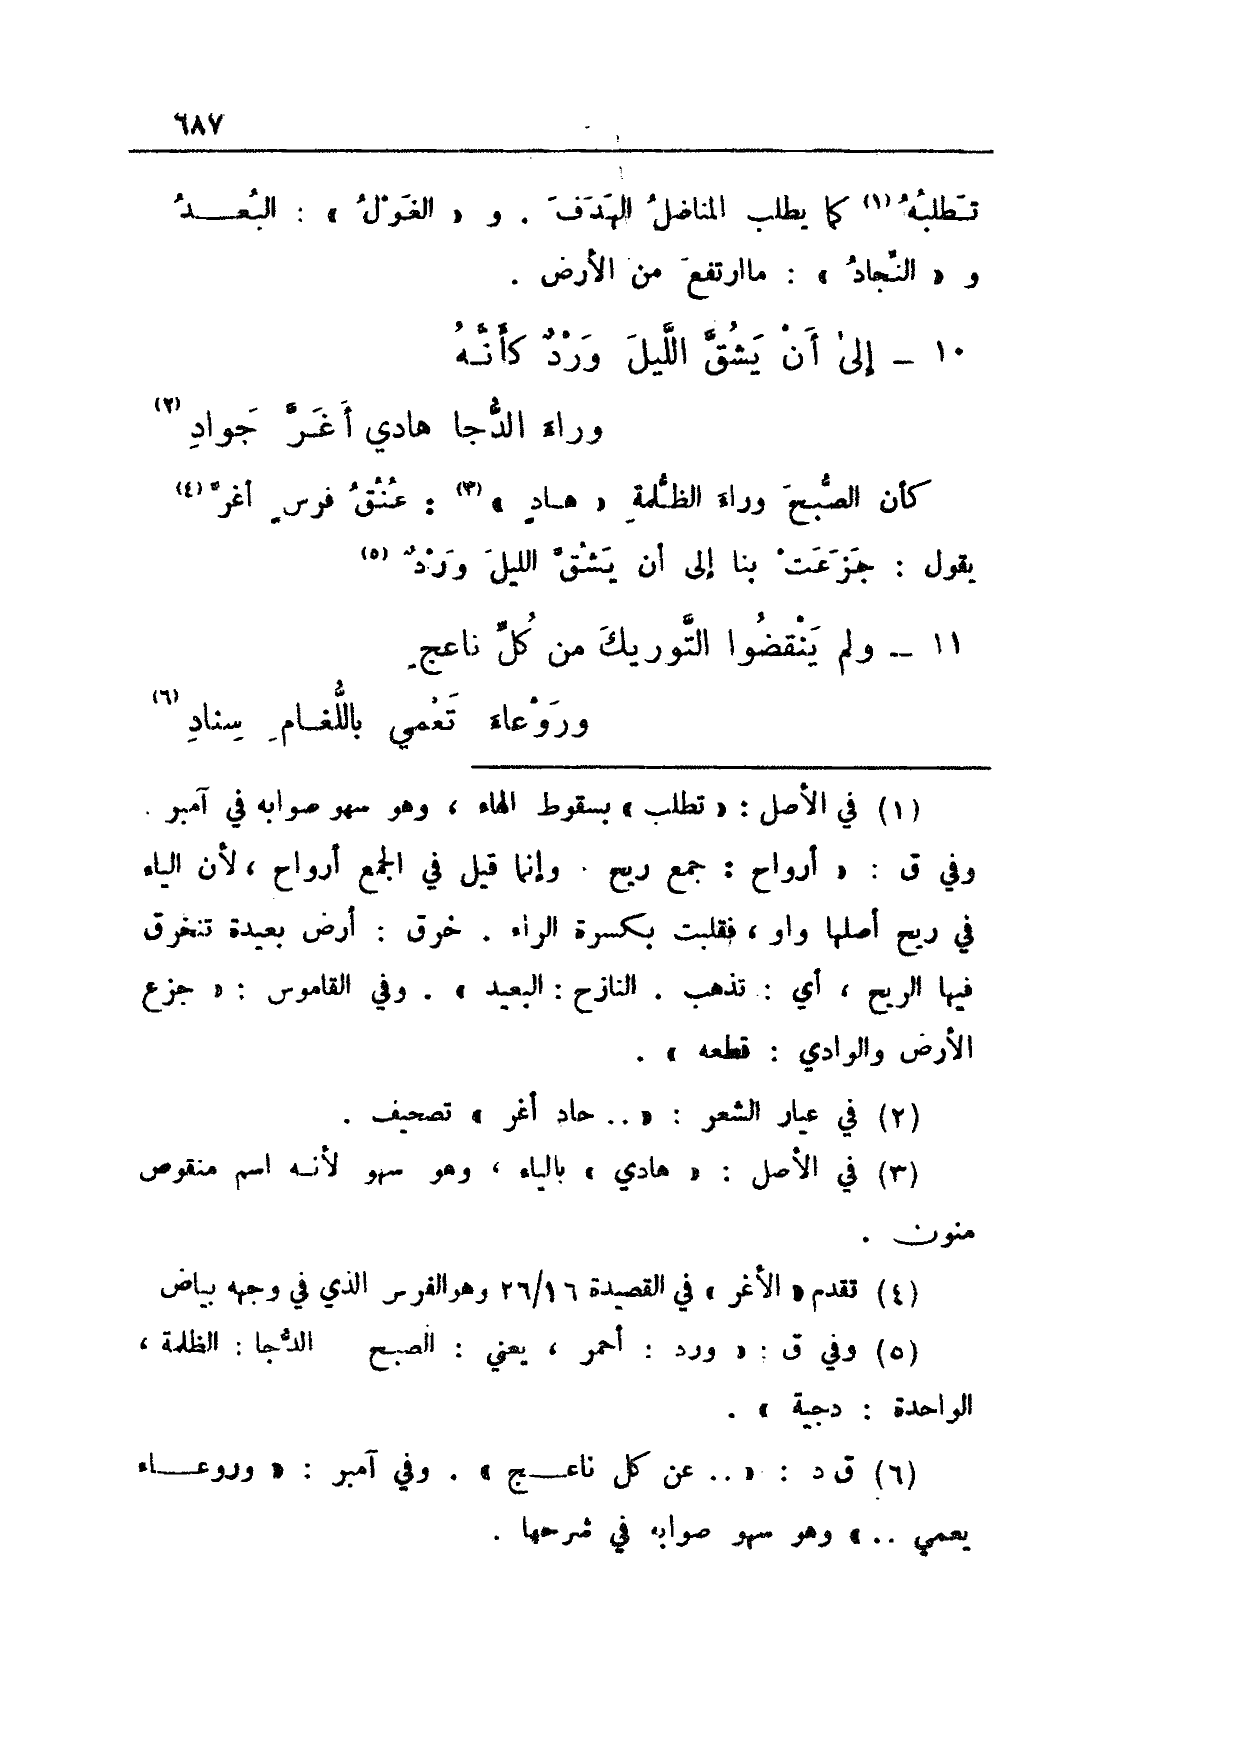 ٦٨٧
تَطلبُهُ (١) كما يطلب المناضلُ الهَدَفَ . و « الغَوْلُ » : البُعــدُ
و « النِّجادُ » : ماارتفعَ من الأرض .
١٠ ـ إلىٰ أَنْ يَشُقَّ اللَّيلَ وَرْدٌ كأَنَّـهُ
وراءَ الدُّجا هادي أَغَـرَّ جَوادِ (٢)
كأن الصُّبحَ وراءَ الظُّلمةِ « هـادٍ » (٣) : عُنْقُ فرسٍ أغرَّ (٤)
يقول : جَزَعَتْ بنا إلى أن يَشُقَّ الليلَ وَرْدٌ (٥)
١١ ـ ولم يَنْقضُوا التَّوريكَ من كُلِّ ناعجٍ
ورَوْعاءَ تَعْمي باللُّغـامِ سِنادِ (٦)
(١) في الأصل : « تطلب » بسقوط الهاء ، وهو سهو صوابه في آمبر .
وفي ق : « أرواح : جمع ريح . وإنما قيل في الجمع أرواح ، لأن الياء
في ريح أصلها واو ، فقلبت بكسرة الراء . خرق : أرض بعيدة تنخرق
فيها الريح ، أي : تذهب . النازح : البعيد » . وفي القاموس : « جزع
الأرض والوادي : قطعه » .
(٢) في عيار الشعر : « .. حاد أغر » تصحيف .
(٣) في الأصل : « هادي » بالياء ، وهو سهو لأنـه اسم منقوص
منون .
(٤) تقدم « الأغر » في القصيدة ٢٦/١٦ وهو الفرس الذي في وجهه بياض
(٥) وفي ق : « ورد : أحمر ، يعني : الصبح الدُّجا : الظلمة ،
الواحدة : دجية » .
(٦) ق د : « .. عن كل ناعـج » . وفي آمبر : « وروعــاء
يعمي .. » وهو سهو صوابه في شرحها .